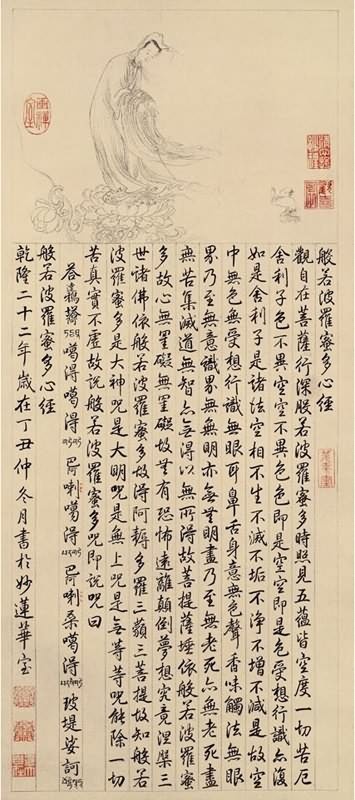 般若波羅蜜多心經
觀自在菩薩行深般若波羅蜜多時照見五蘊皆空度一切苦厄
舍利子色不異空空不異色色即是空空即是色受想行識亦復
如是舍利子是諸法空相不生不滅不垢不淨不增不減是故空
中無色無受想行識無眼耳鼻舌身意無色聲香味觸法無眼
界乃至無意識界無無明亦無無明盡乃至無老死亦無老死盡
無苦集滅道無智亦無得以無所得故菩提薩埵依般若波羅蜜
多故心無罣礙無罣礙故無有恐怖遠離顛倒夢想究竟涅槃三
世諸佛依般若波羅蜜多故得阿耨多羅三藐三菩提故知般若
波羅蜜多是大神咒是大明咒是無上咒是無等等咒能除一切
苦真實不虛故說般若波羅蜜多咒即說咒曰
荅嘉 噶得噶得 喇噶得 喇桑噶得 玻堤娑訶
般若波羅蜜多心經
乾隆二十二年歲在丁丑仲冬月書於妙蓮華室